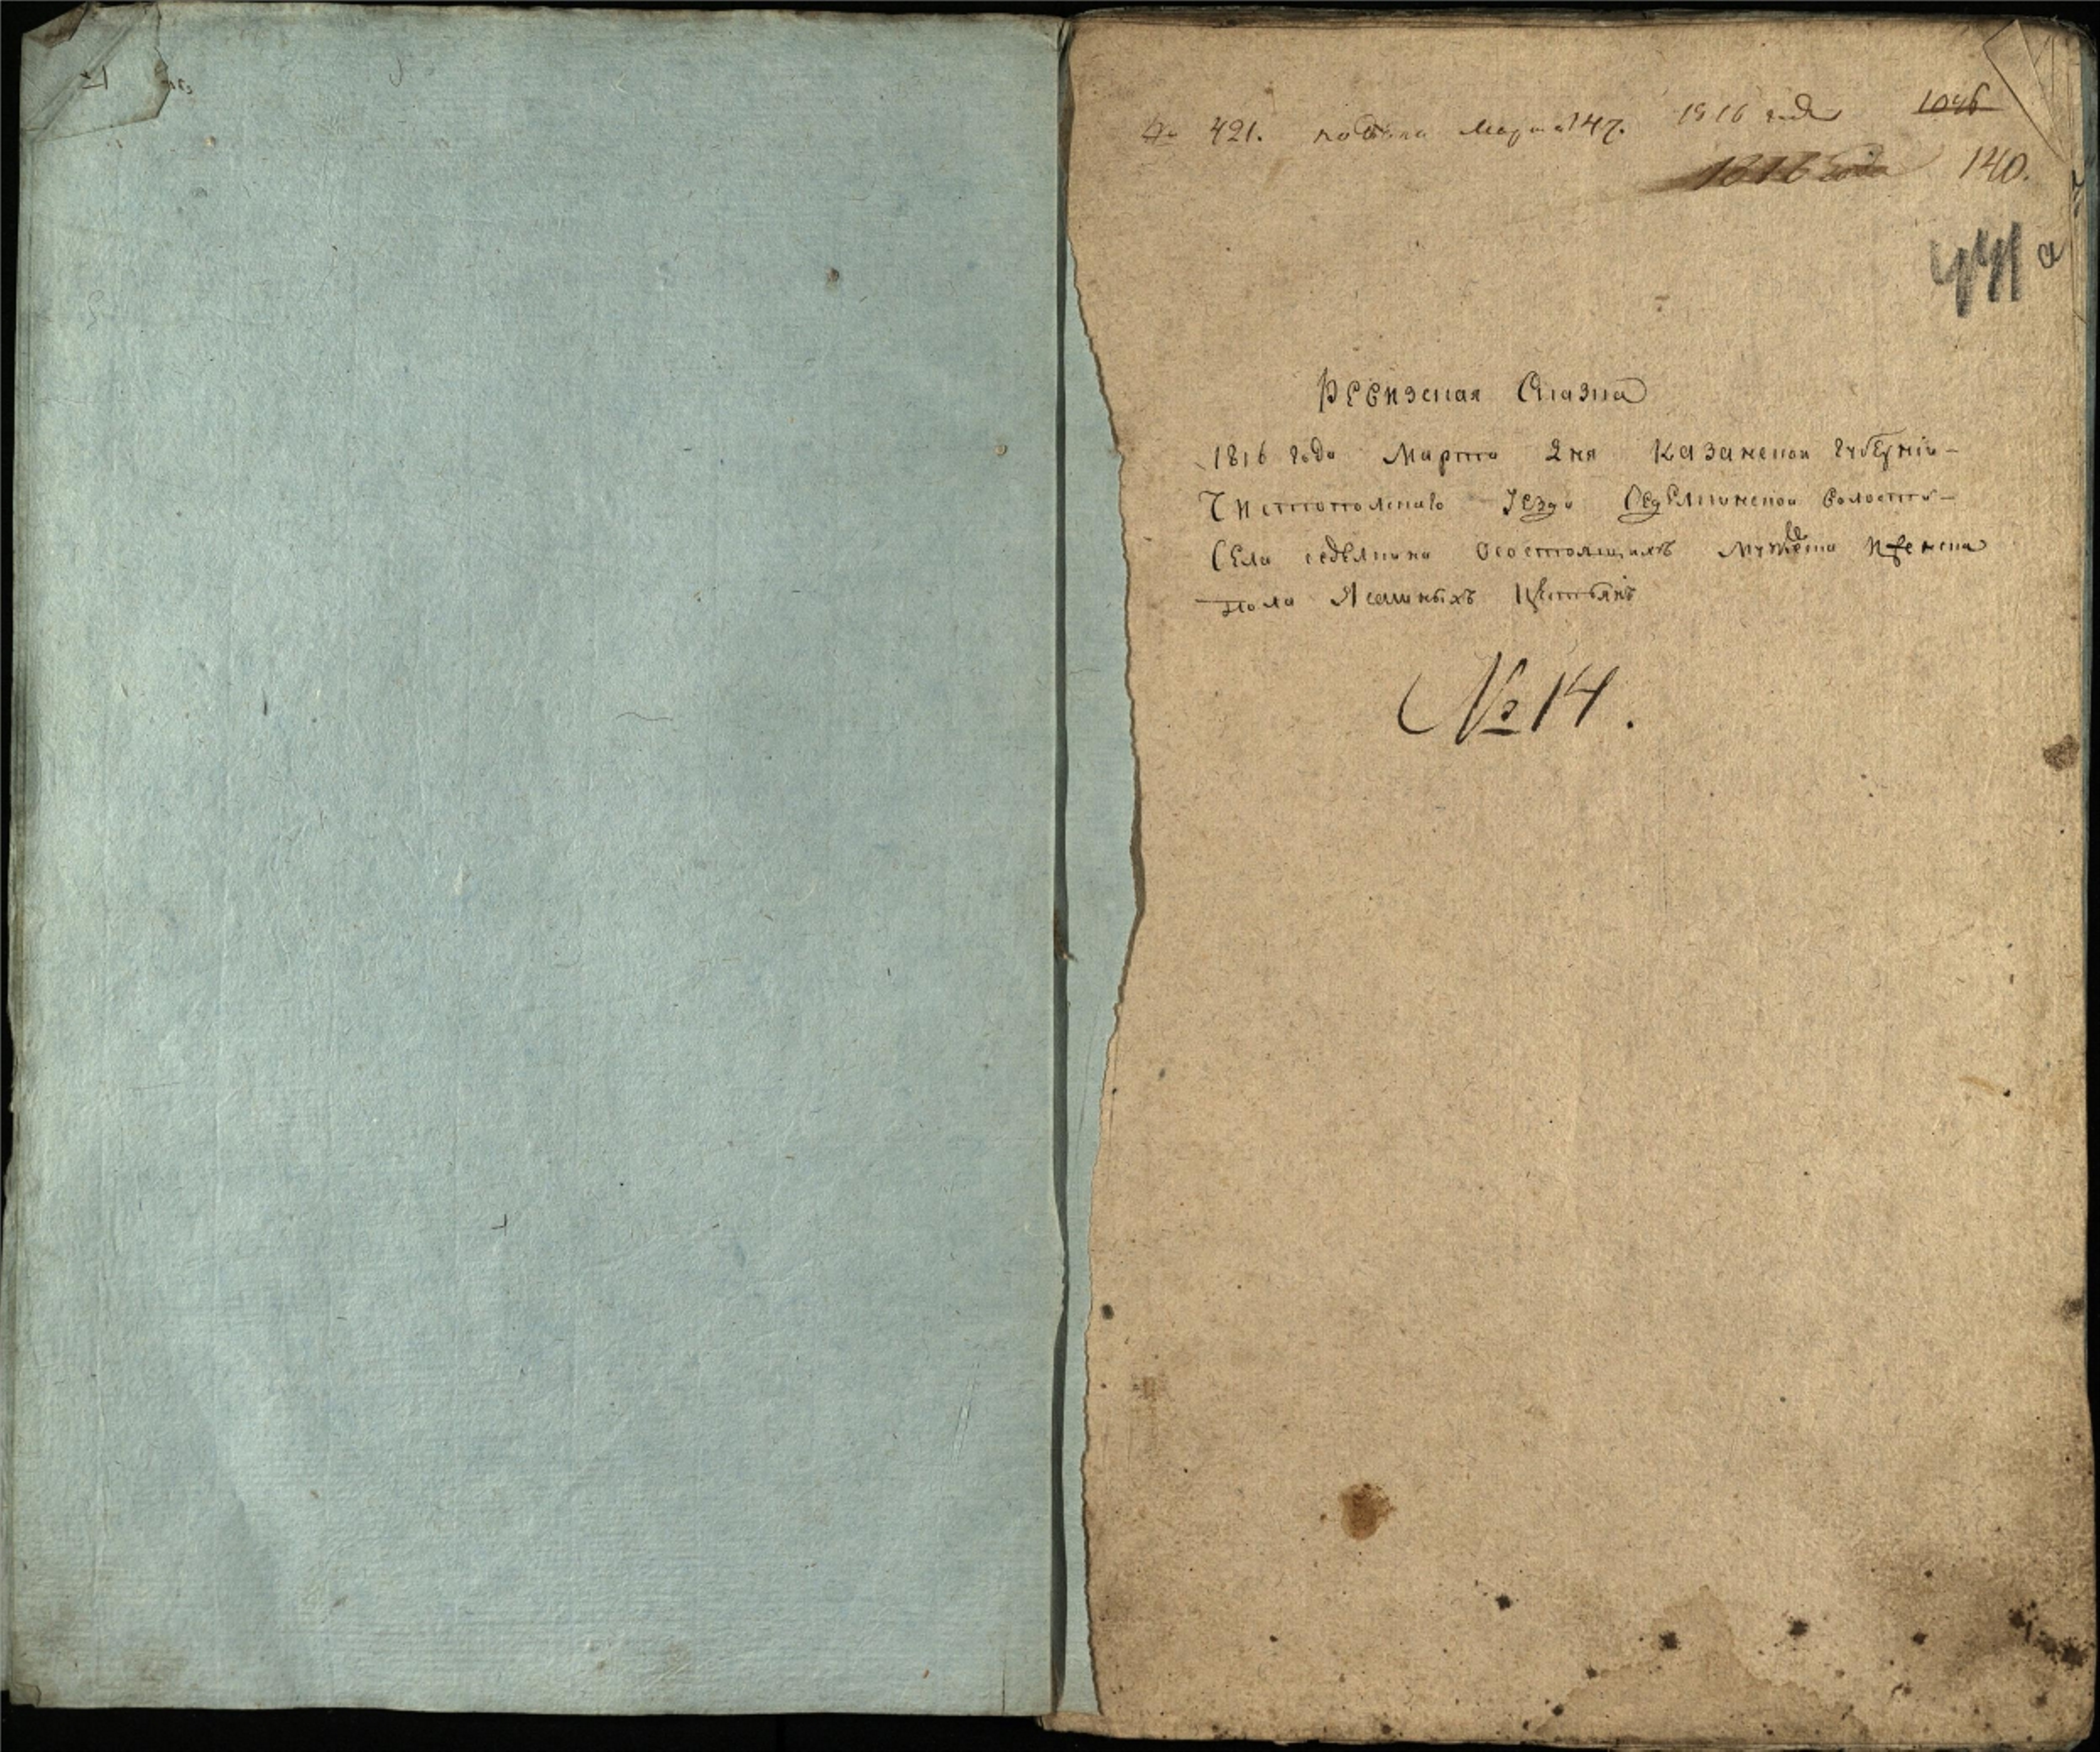 № 421. подана Марта 147. 1816 года 1046
1816 года 140.
441 а
Ревизская Сказка
1816 года Марта дня Казанской губернiи
Чистопольскаго уезда Седелкинской волости
Села седелкина осостоящихъ мужеска иженска
пола Ясашныхъ Крестьянъ
№ 14.